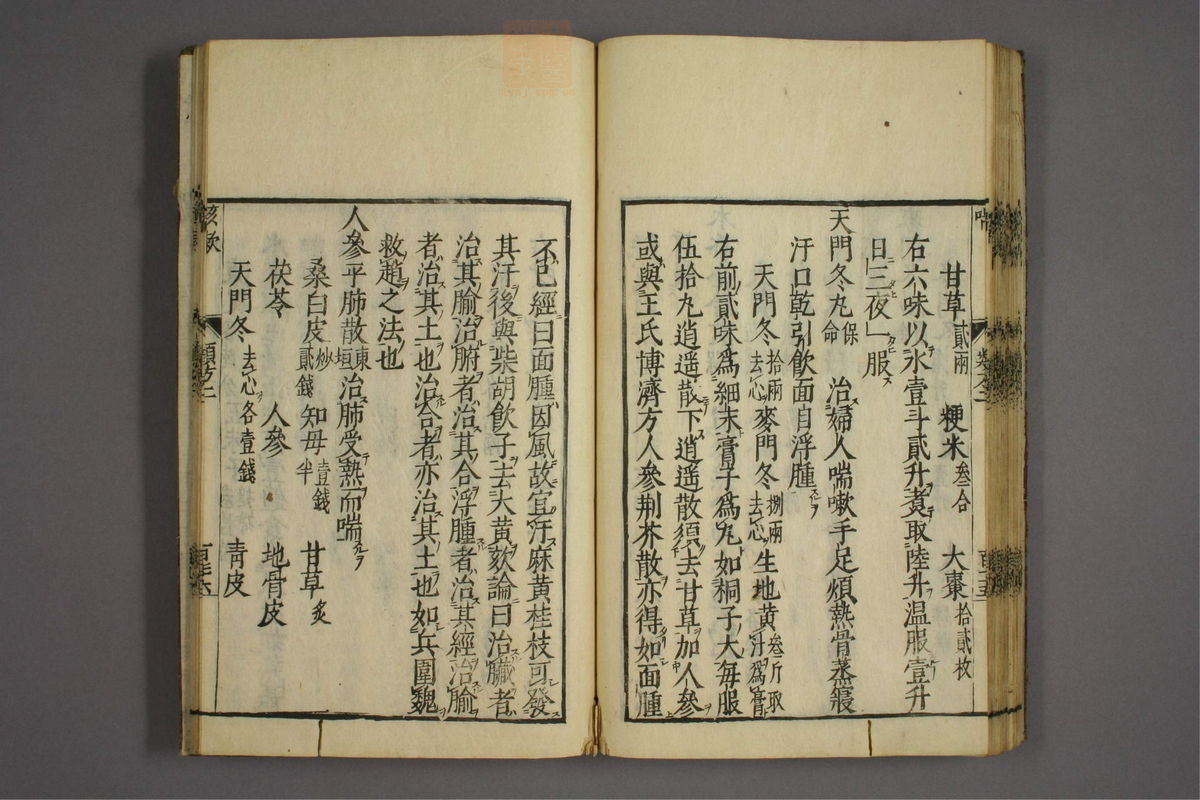 甘草貳兩 粳米叁合 大棗拾貳枚
右六味以水壹斗貳升煮取陸升温服壹升
日三夜一服
天門冬丸保命 治婦人喘嗽手足煩熱骨蒸寢
汗口乾引飲面自浮腫
天門冬拾兩去心 麥門冬捌兩去心 生地黄叁斤取汁爲膏
右前貳味爲細末膏子爲丸如桐子大每服
伍拾丸逍遥散下逍遥散須去甘草加人參
或與王氏博濟方人參荆芥散亦得如面腫
不已經曰面腫因風故宜汗麻黄桂枝可發
其汗後與柴胡飲子去大黄欬論曰治臟者
治其腧治腑者治其合浮腫者治其經治腧
者治其土也治合者亦治其土也如兵圍魏
救趙之法也
人參平肺散東垣 治肺受熱而喘
桑白皮炒貳錢 知母壹錢半 甘草炙
茯苓 人參 地骨皮
天門冬去心各壹錢 青皮
咳欬